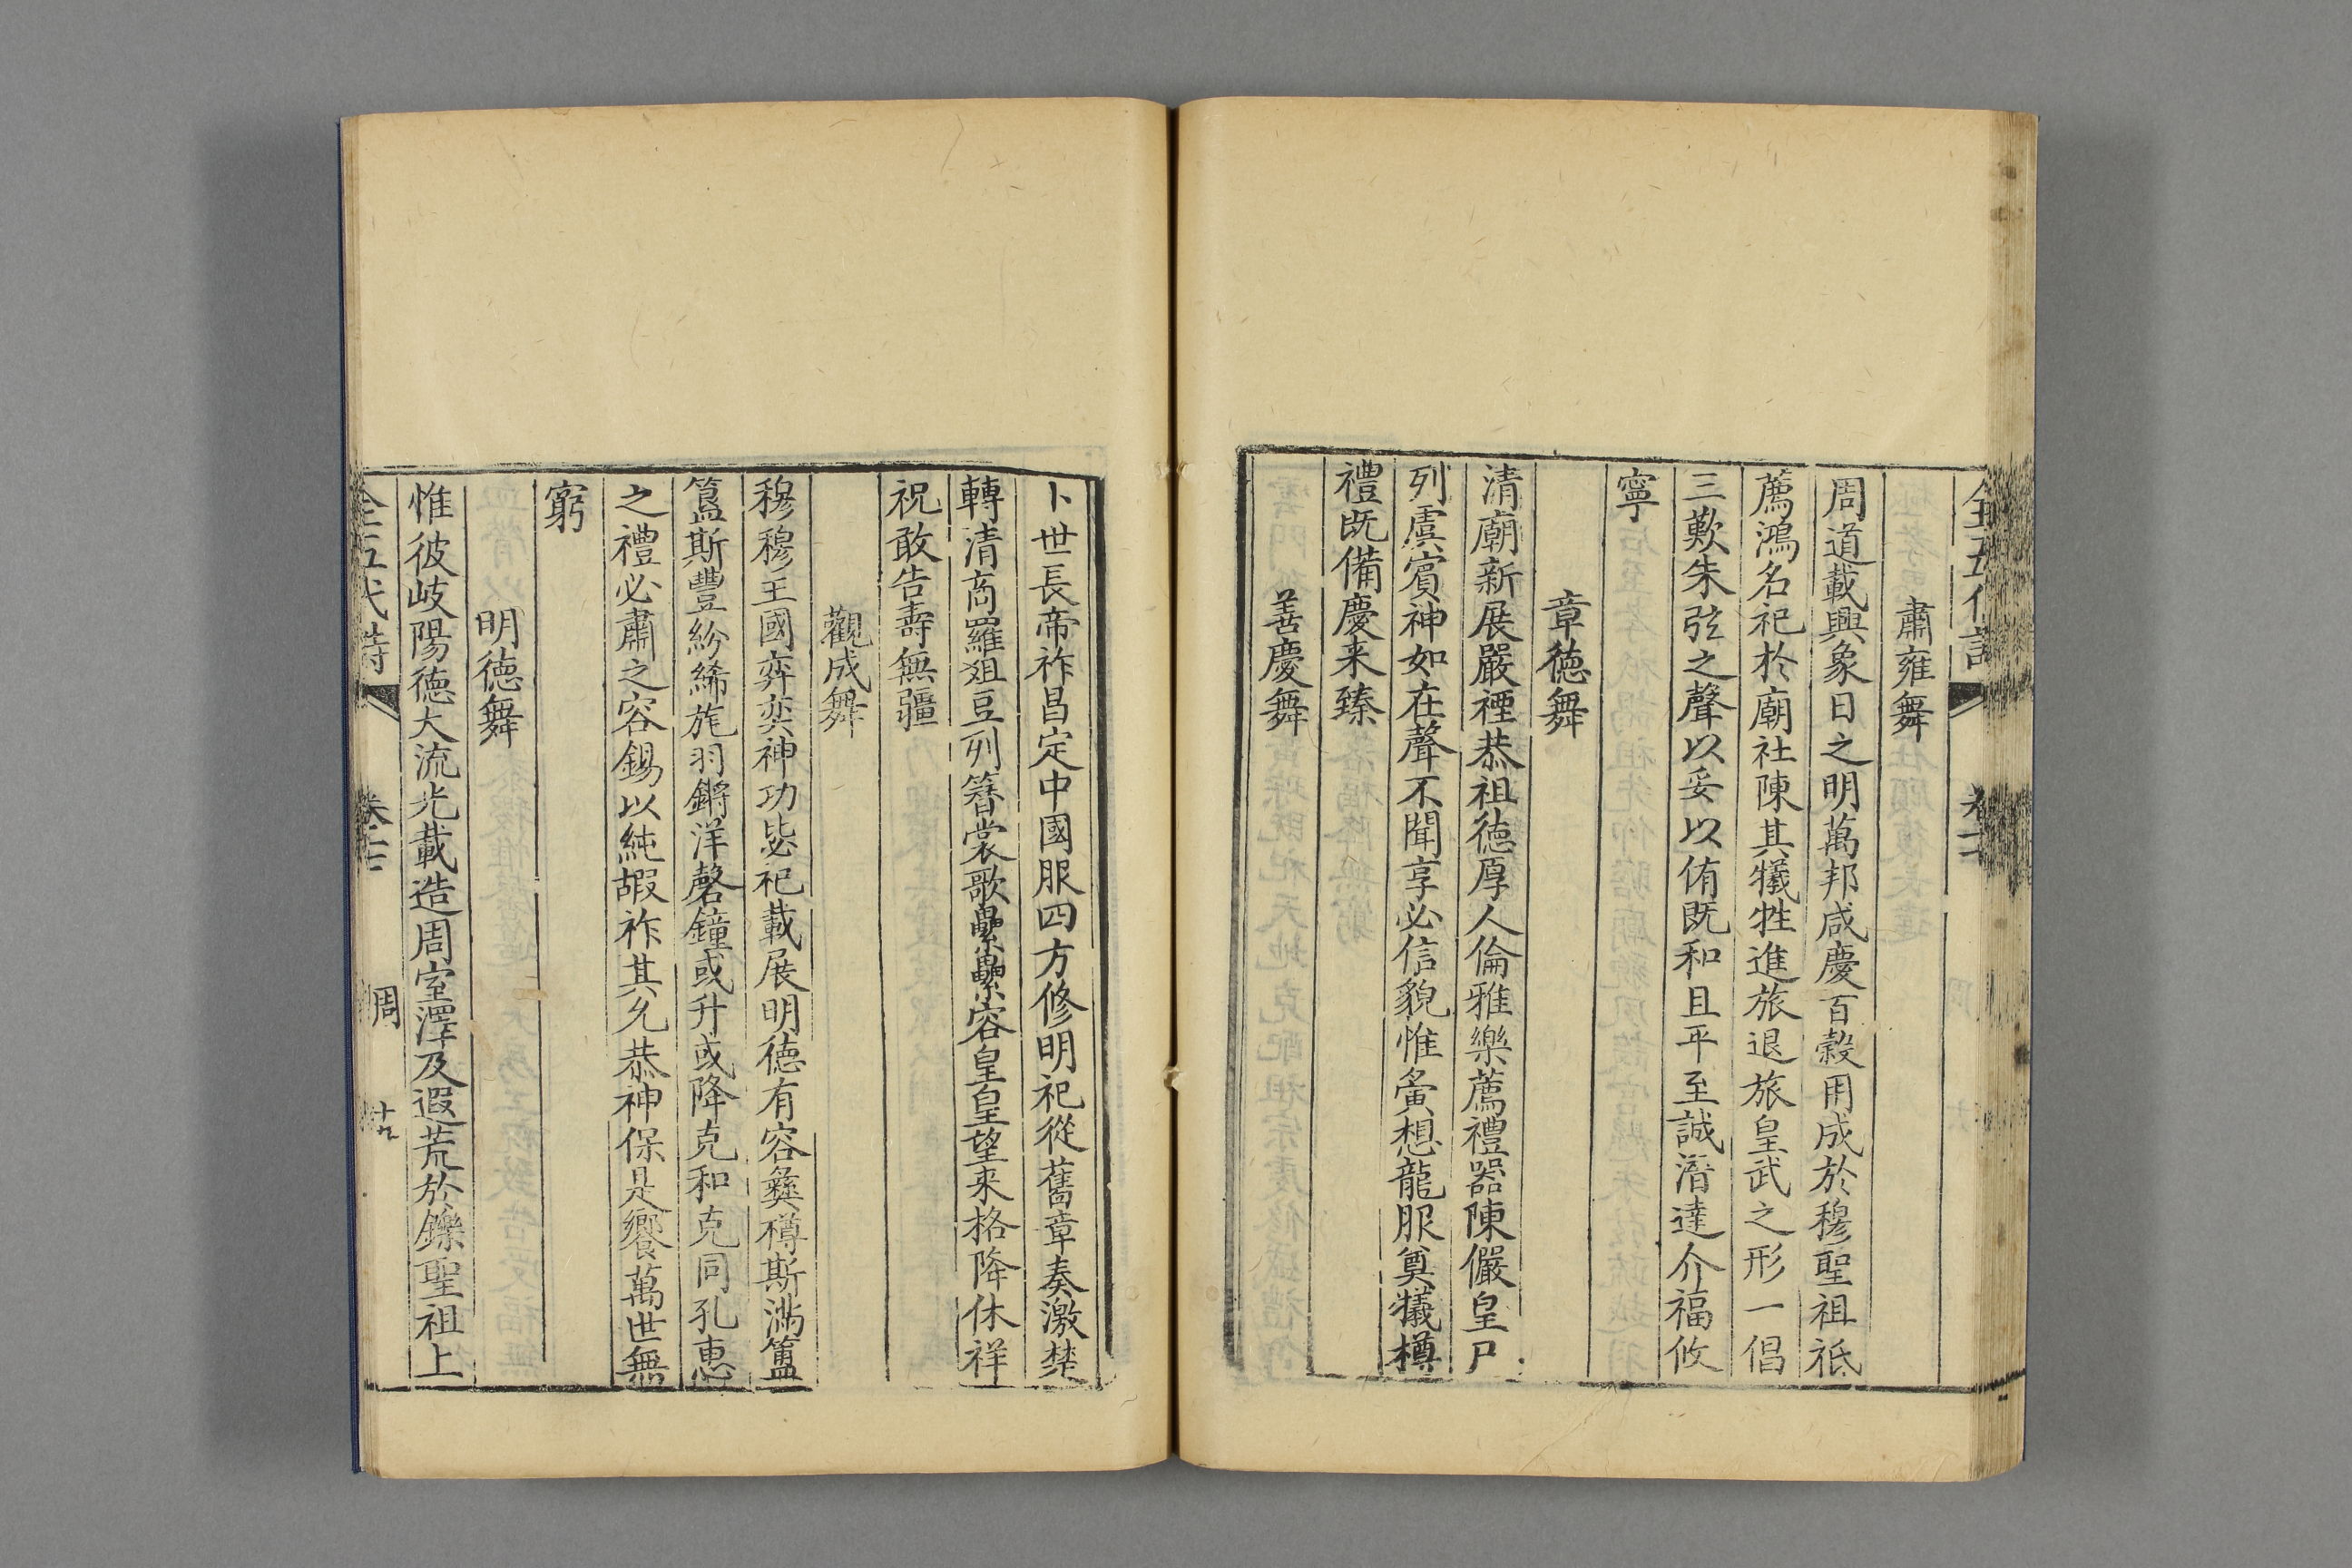 肅雍舞
周道載興象日之明萬邦咸慶百穀用成於穆聖祖祗
薦鴻名祀於廟社陳其犧牲進旅退旅皇武之形一倡
三歎朱弦之聲以妥以侑既和且平至誠潛達介福攸
寧
章德舞
清廟新展嚴禋恭祖德厚人倫雅樂薦禮器陳儼皇尸
列虞賓神如在聲不聞享必信貌惟夤想龍服奠犧樽
禮既備慶来臻
善慶舞
卜世長帝祚昌定中國服四方修明祀從舊章奏激楚
轉清商羅俎豆列簪裳歌纍纍容皇皇望来格降休祥
祝敢告壽無疆
觀成舞
穆穆王國奕奕神功毖祀載展明德有容彝樽斯滿簠
簋斯豐紛綈旄羽鏘洋磬鐘或升或降克和克同孔惠
之禮必肅之容錫以純嘏祚其允恭神保是饗萬世無
窮
明德舞
惟彼岐陽德大流光載造周室澤及遐荒於鑠聖祖上
全五代詩
周